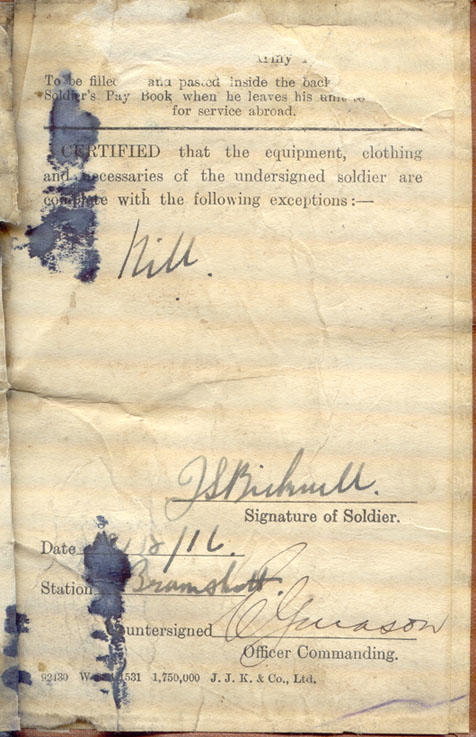 Army
To be filled and pasted inside the back
Soldier's Pay Book when he leaves his unit to
for service abroad.
CERTIFIED that the equipment, clothing
and necessaries of the undersigned soldier are
complete with the following exceptions:—
Nill.
J S Bicknell.
Signature of Soldier.
Date /8/16.
Station Bramshott.
Countersigned
Officer Commanding.
92430 W 1531 1,750,000 J. J. K. & Co., Ltd.